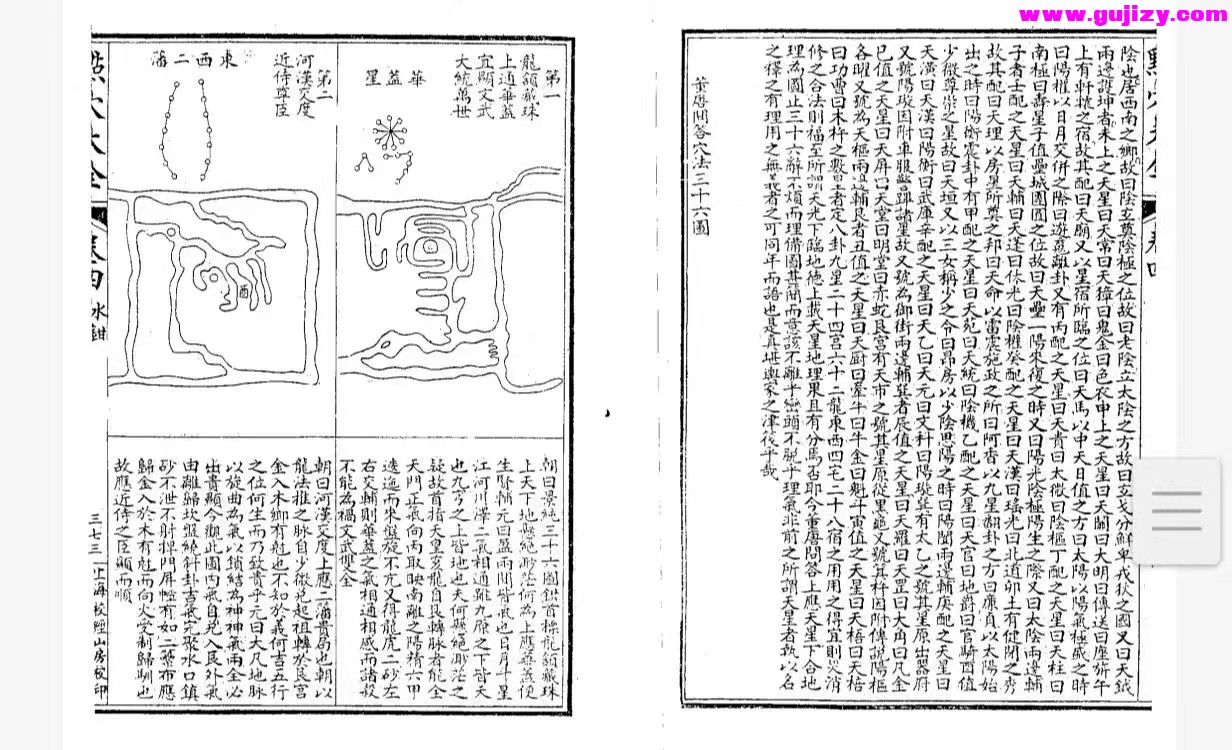 www.gujizy.com
陰也居西南之鄉故曰陰玄奠陰極之位故曰老陰立太陰之方故曰玄戈分鮮卑戎狄之國又曰天鉞
兩邊護坤者未上之天星曰天常曰天獐曰鬼金曰色衣申上之天星曰天關曰大明曰傳送曰座旂午
上有軒轅之宿故其配曰天廟又以星宿所臨之位曰天馬以中天日值之方曰太陽以陽氣極盛之時
曰陽權以日月交併之際曰遊魂離卦又有丙配之天星曰天貴曰太微曰陰樞丁配之天星曰天柱曰
南極曰壽星子值壘城團圓之位故曰天壘一陽來復之時又曰陽光陰極陽生之際又曰太陰兩邊輔
子者壬配之天星曰天輔曰天蓬曰休光曰陰權癸配之天星曰天漢曰瑤光曰北道卯土有健閉之旁
故其配曰天理以房星所奠之邦曰天命以雷震施政之所曰阿香以九星翻卦之方曰廉貞以太陽始
出之時曰陽衡震卦中有甲配之天星曰天苑曰天統曰陰機乙配之天星曰天官曰地爵曰官騎酉值
少微尊崇之星故曰天垣又以三女稱少之令曰昴房以少陰思陽之時曰陽闓兩邊輔庚配之天星曰
天潢曰天漢曰陽衡曰武庫辛配之天星曰天乙曰天元曰文科曰陽璇巽有太乙之號其星原出器府
又號陽璇因附車服鸞踞諸星故又號為御街兩邊輔巽者辰值之天星曰天羅曰天罡曰大角曰凡金
巳值之天星曰天屏曰天堂曰明堂曰赤蛇艮宮有天市之號其星原從里魂又號其杵因附傳說陽樞
各曜又號為天樞兩邊輔艮者丑值之天星曰天厨曰牽牛曰牛金曰魁斗寅值之天星曰天棓曰天梧
曰功曹曰木杵之數星者定八卦九星二十四宮六十二龍東西四宅二十八宿之用用之得宜則災消
修之合法則福至所謂天光下臨地德上載天星地理果且有分馬否耶今重唐問答上應天星下合地
理為圖止三十六辭不煩而理備圖甚簡而意該不離乎巒頭不脫乎理氣非前之所謂天星者執以名
之擇之有理用之無者之可同年而語也是真堪輿家之津筏乎哉
董唐問答穴法三十六圖
卷四
第一
龍頷藏珠
上通華蓋
宜顯文武
大統萬世
華蓋星
第二
河漢交度
近侍尊臣
東西二藩
酉
朝曰景純三十六圖鉗首標龍頷藏珠
上天下地懸絕渺茫何為上應華蓋便
生賢輔元曰蓋兩間皆氣也日月斗星
江河川澤二氣相通雖九原之下皆天
也九穹之上皆地也天何懸絕渺茫之
疑故首指天皇亥龍自艮轉脉者能全
天門正氣向丙取映南離之陽精六甲
逶迤而來盤旋不亢又得龍虎二砂左
右交輔則華蓋之氣相通相感而諸殺
不能為禍文武雙全
朝曰河漢交度上應二藩貴局也朝以
龍法推之脉自少微兑起祖轉於艮宮
金入木鄉有尅也不知於義何吉五行
之位何生而乃致貴乎元曰大凡地脉
以旋曲為氣以鎖結為神神氣兩全必
出貴顯今觀此圖內氣自兑入艮外氣
由離歸坎盤繞斜卦吉氣完聚水口鎮
砂不泄不射捍門屏帷有如二藩布應
歸金入於木有尅而向火受制歸馴也
故應近侍之臣顯而順
卷四 水鉗
三七三 上海校經山房校印